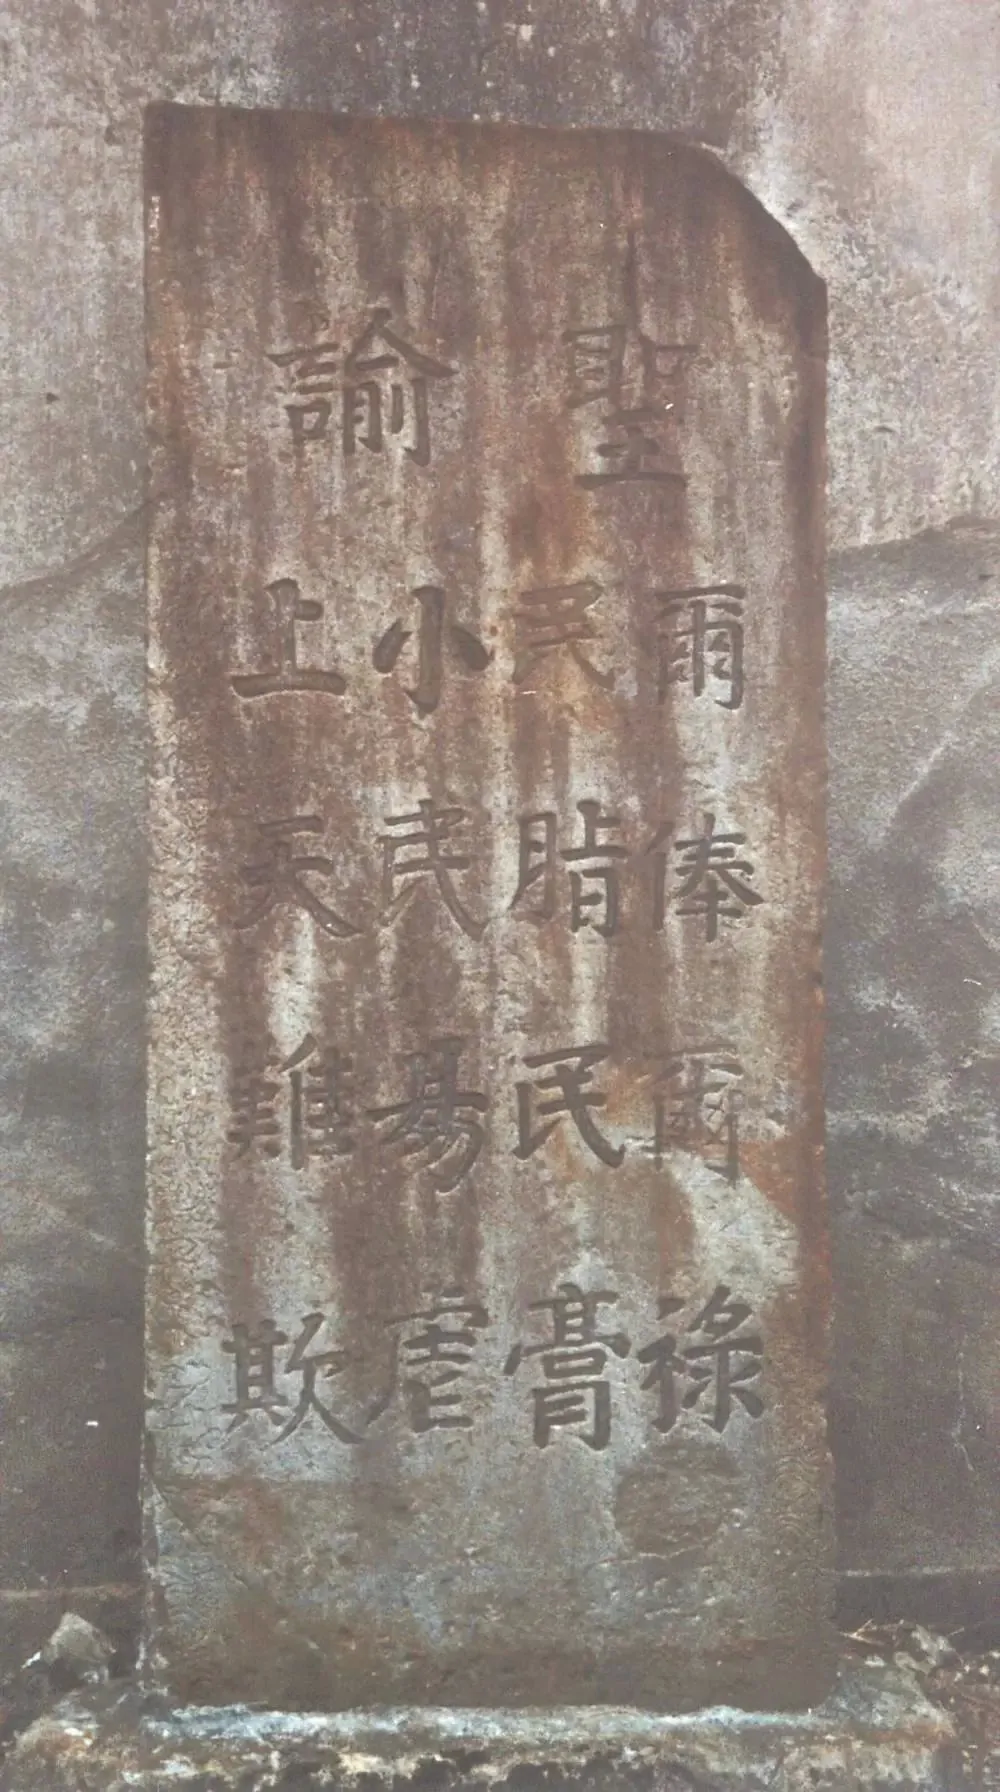 聖諭
爾俸爾祿
民脂民膏
小民易虐
上天難欺